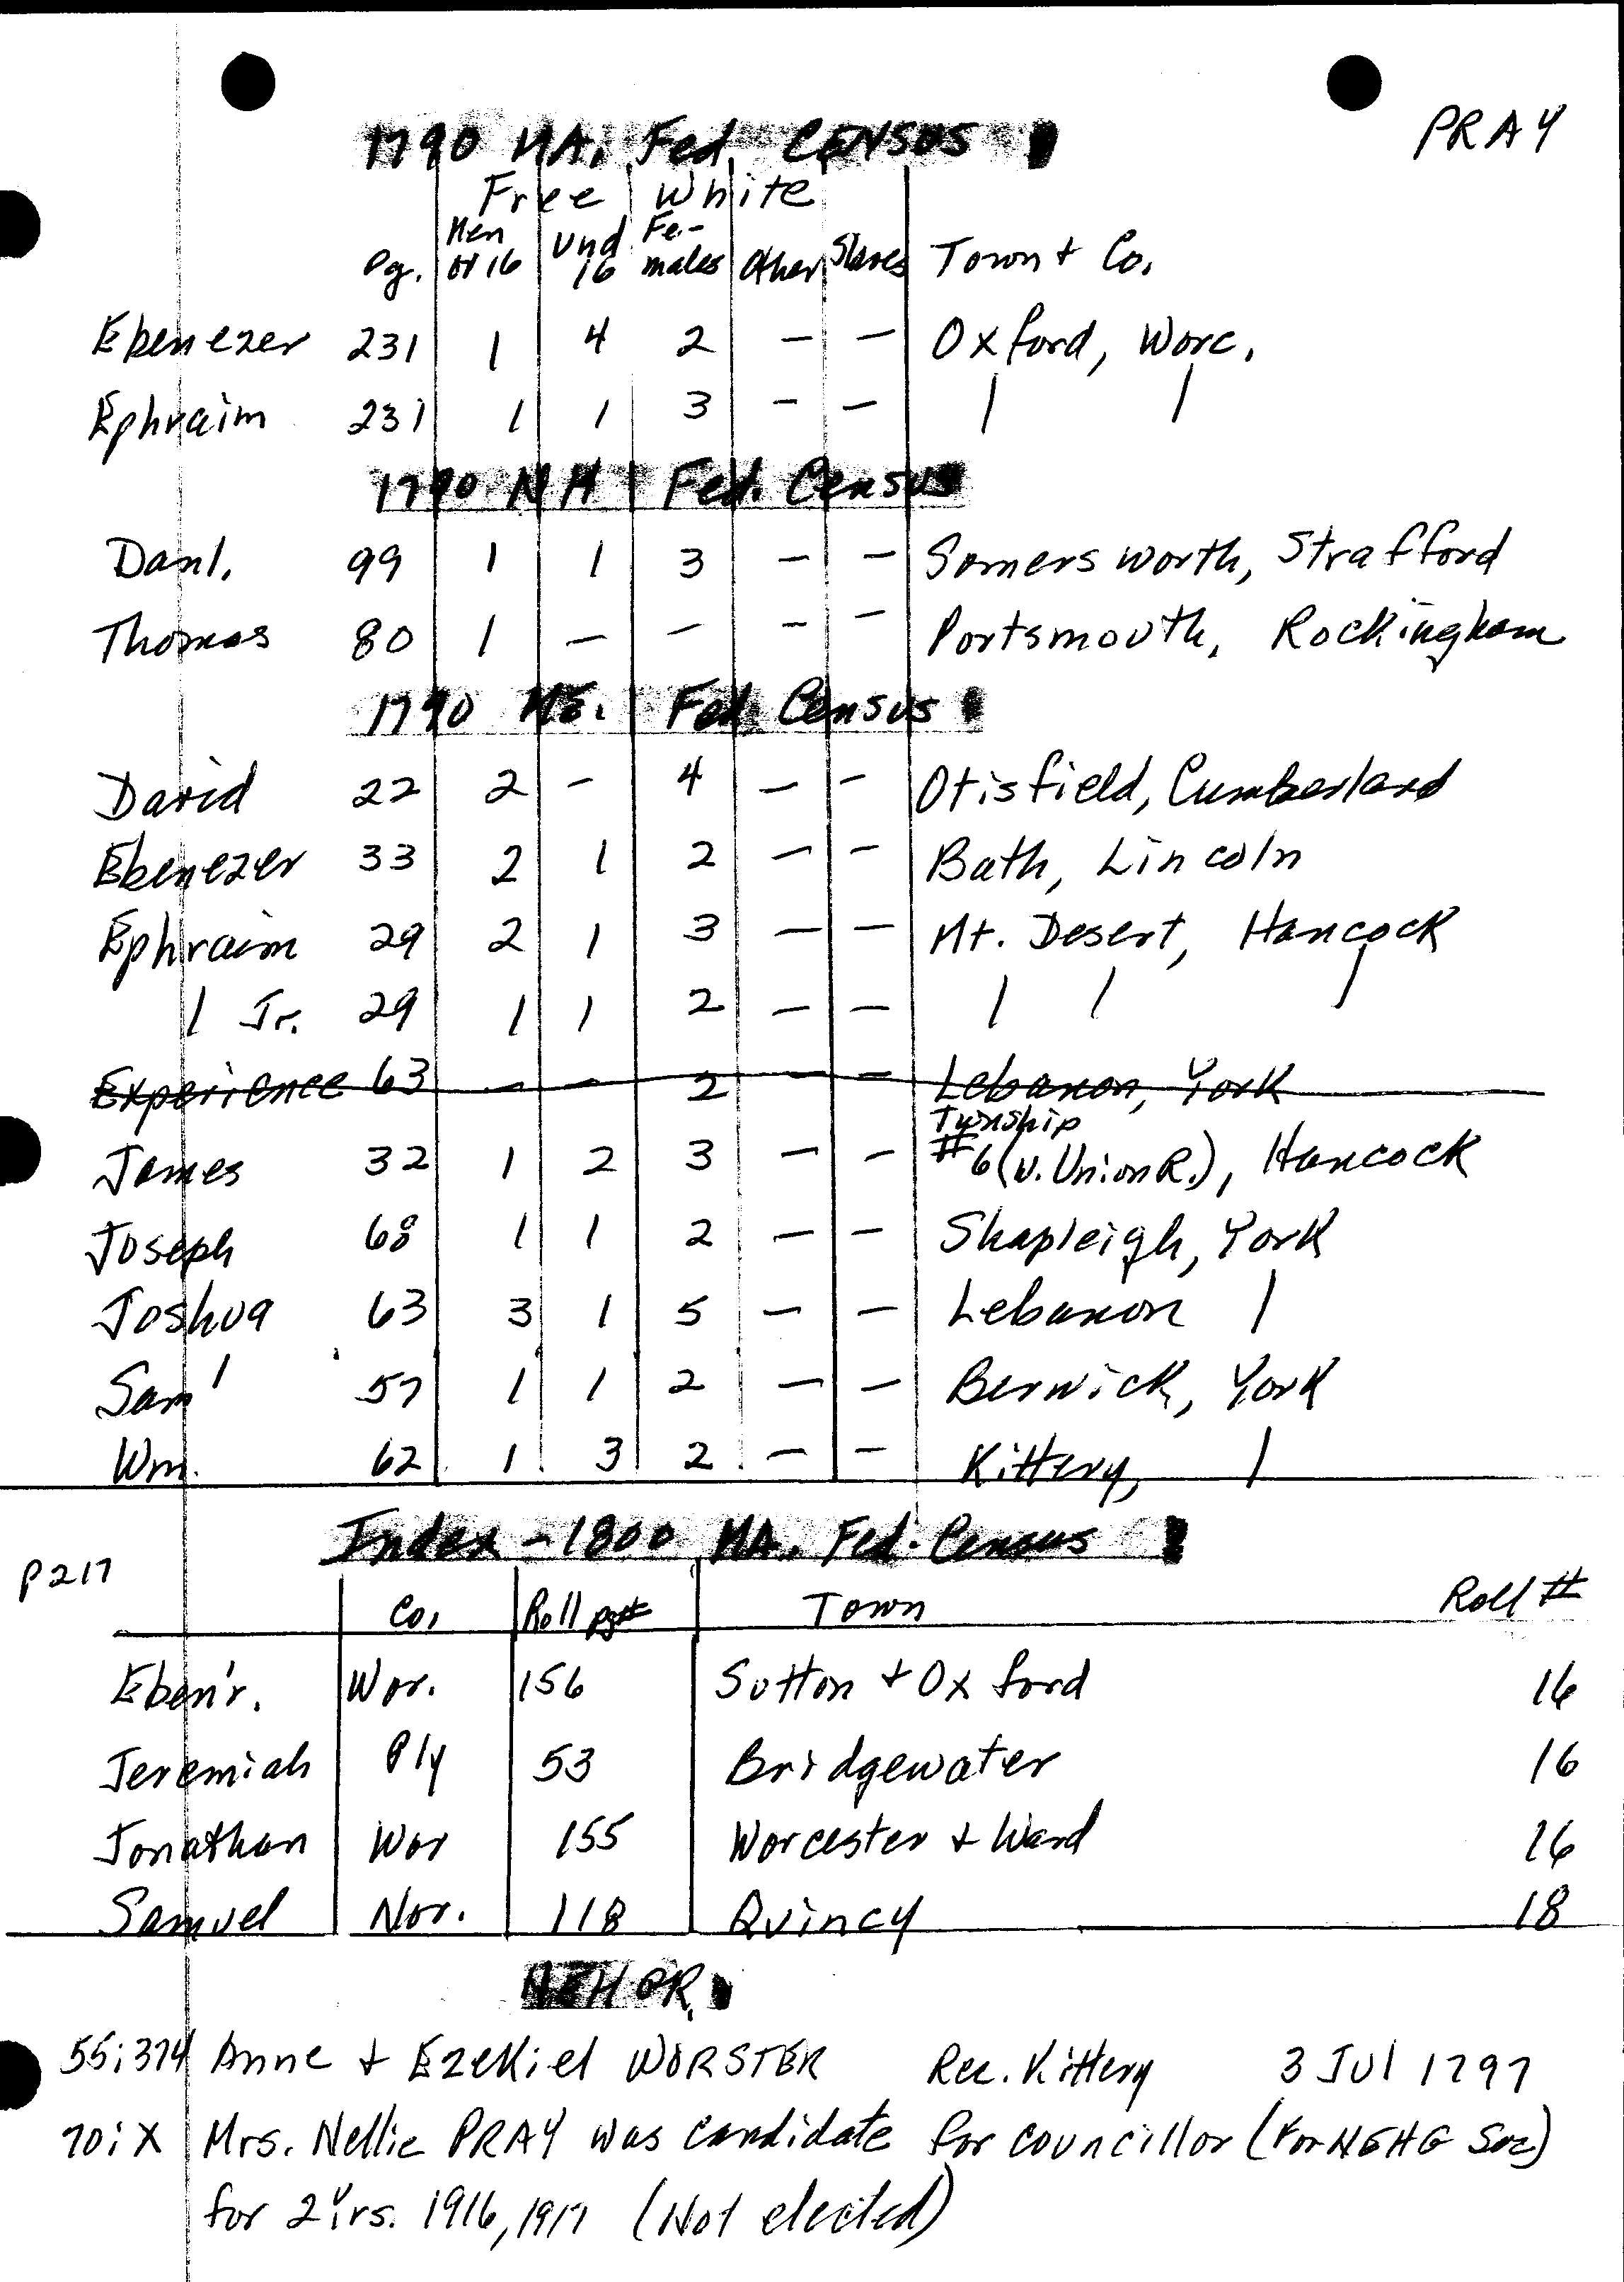 PRAY
1790 MA. Fed. CENSUS
Free White
Pg. Men of 16 Und 16 Fe-males Other Slaves Town + Co.
Ebenezer 231 1 4 2 - - Oxford, Worc.
Ephraim 231 1 1 3 - - | |
1790 NH Fed. Census
Danl. 99 1 1 3 - - Somersworth, Strafford
Thomas 80 1 - - - - Portsmouth, Rockingham
1790 ME. Fed. Census
David 22 2 - 4 - - Otisfield, Cumberland
Ebenezer 33 2 1 2 - - Bath, Lincoln
Ephraim 29 2 1 3 - - Mt. Desert, Hancock
| Jr. 29 1 1 2 - - | | |
Experience 63 - - 2 - - Lebanon, York
James 32 1 2 3 - - Twnship #6 (W. Union R.), Hancock
Joseph 68 1 1 2 - - Shapleigh, York
Joshua 63 3 1 5 - - Lebanon |
Saml 57 1 1 2 - - Berwick, York
Wm. 62 1 3 2 - - Kittery, |
Index - 1800 MA. Fed. Census
P217
Co. Roll pg# Town Roll #
Eben'r. Wor. 156 Sutton + Oxford 16
Jeremiah Ply 53 Bridgewater 16
Jonathan Wor 155 Worcester + Ward 16
Samuel Nor. 118 Quincy 18
55:374 Anne + Ezekiel WORSTER Rec. Kittery 3 Jul 1797
70:X Mrs. Nellie PRAY was candidate for councillor (for NEHG Soc)
for 2 Yrs. 1916, 1917 (Not elected)